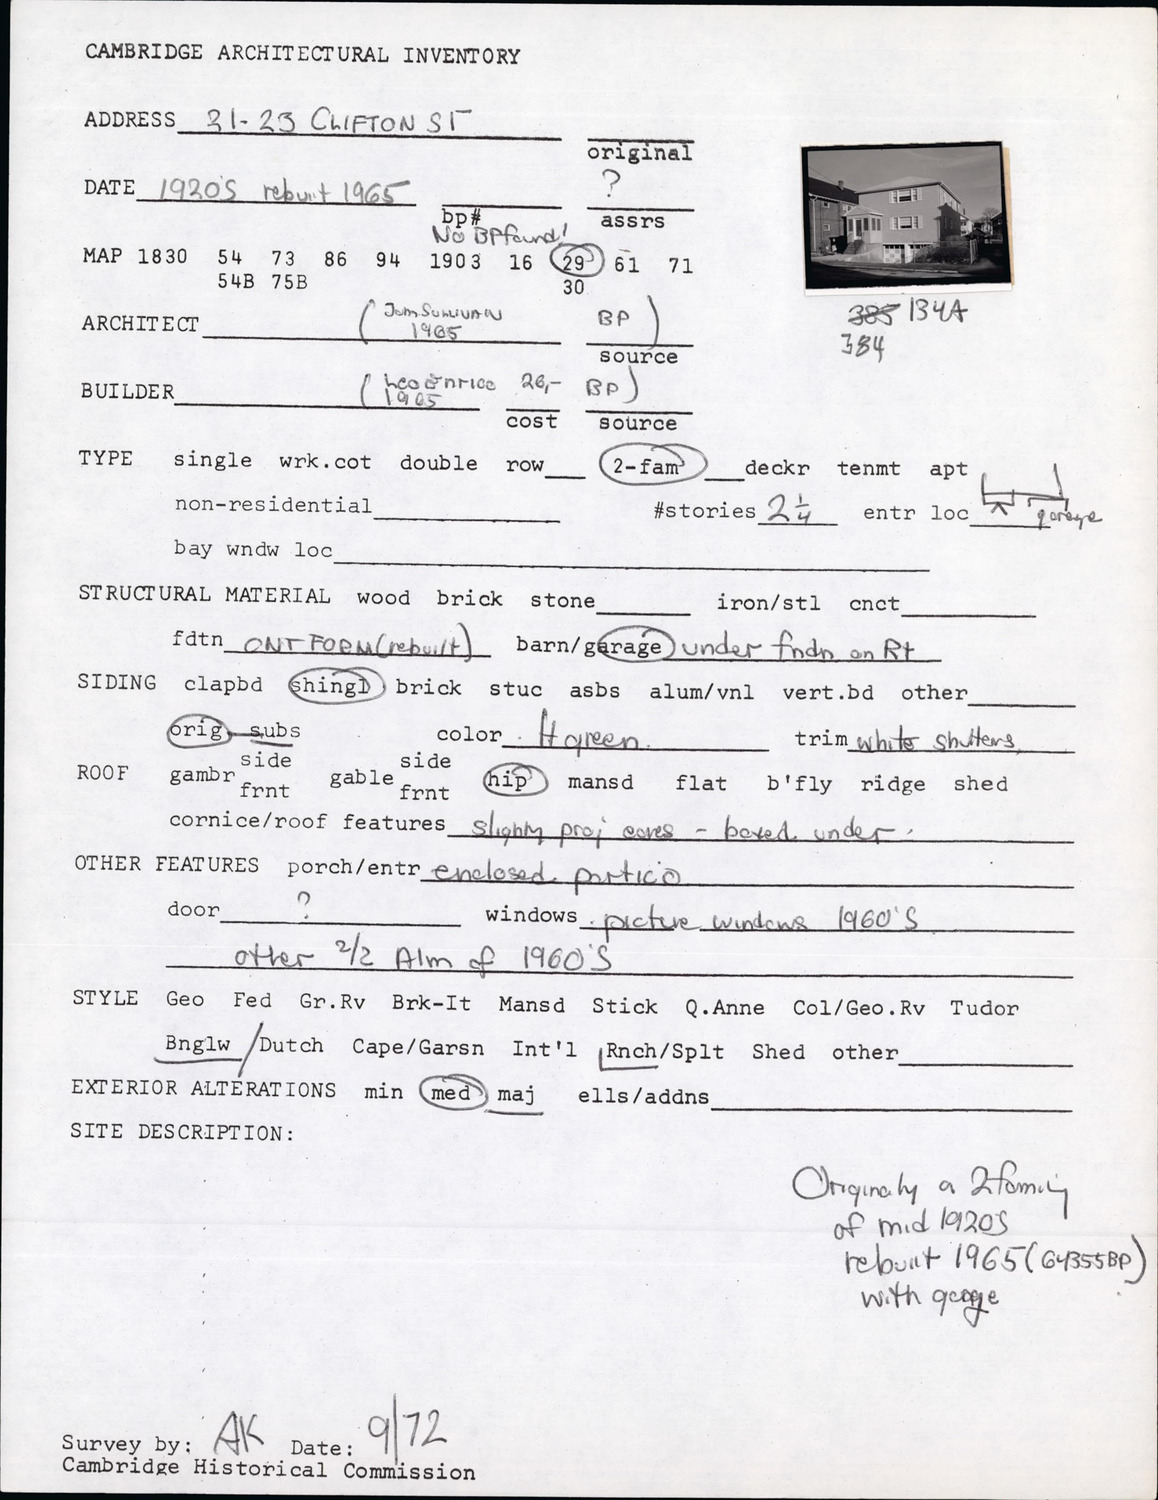 CAMBRIDGE ARCHITECTURAL INVENTORY
ADDRESS 21-23 CLIFTON ST
original
DATE 1920'S rebuilt 1965 ?
bp# assrs
No BP found!
MAP 1830 54 73 86 94 1903 16 29 61 71
54B 75B 30
ARCHITECT ( SULLIVAN BP )
1965
source
BUILDER ( Leo 26,- BP )
1965
cost source
TYPE single wrk.cot double row 2-fam deckr tenmt apt
non-residential #stories 2 1/4 entr loc garage
bay wndw loc
STRUCTURAL MATERIAL wood brick stone iron/stl cnct
fdtn CNT FORM (rebuilt) barn/garage under fndn on Rt
SIDING clapbd shingl brick stuc asbs alum/vnl vert.bd other
orig subs color lt green trim white shutters
ROOF gambr side frnt gable side frnt hip mansd flat b'fly ridge shed
cornice/roof features slighty proj eaves - boxed under
OTHER FEATURES porch/entr enclosed portico
door ? windows picture windows 1960'S
other 2/2 Alm of 1960'S
STYLE Geo Fed Gr.Rv Brk-It Mansd Stick Q.Anne Col/Geo.Rv Tudor
Bnglw/Dutch Cape/Garsn Int'l Rnch/Splt Shed other
EXTERIOR ALTERATIONS min med maj ells/addns
SITE DESCRIPTION:
385 134A
384
Originaly a 2 family
of mid 1920'S
rebuilt 1965 (64355BP)
with garage
Survey by: AK Date: 9/72
Cambridge Historical Commission